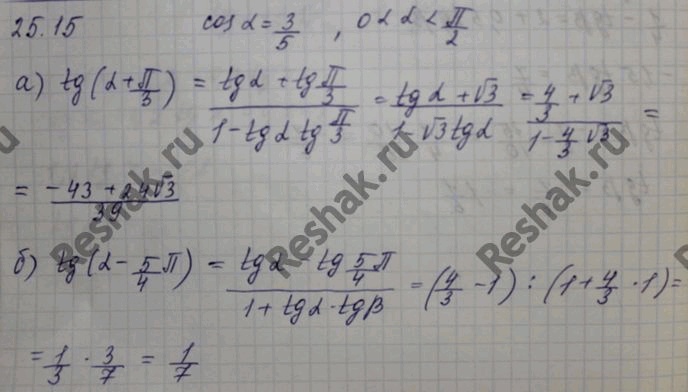 25.15 cos α = 3/5 , 0 < α < π/2
а) tg(α + π/3) = (tgα + tg π/3)/(1 - tgα tg π/3) = (tgα + √3)/(1 - √3 tgα) = (4/3 + √3)/(1 - 4/3 √3) =
= (-43 + 24√3)/39
б) tg(α - 5/4 π) = (tgα - tg 5/4 π)/(1 + tgα · tgβ) = (4/3 - 1) : (1 + 4/3 · 1) =
= 1/3 · 3/7 = 1/7
Reshak.ru
Reshak.ru
Reshak.ru